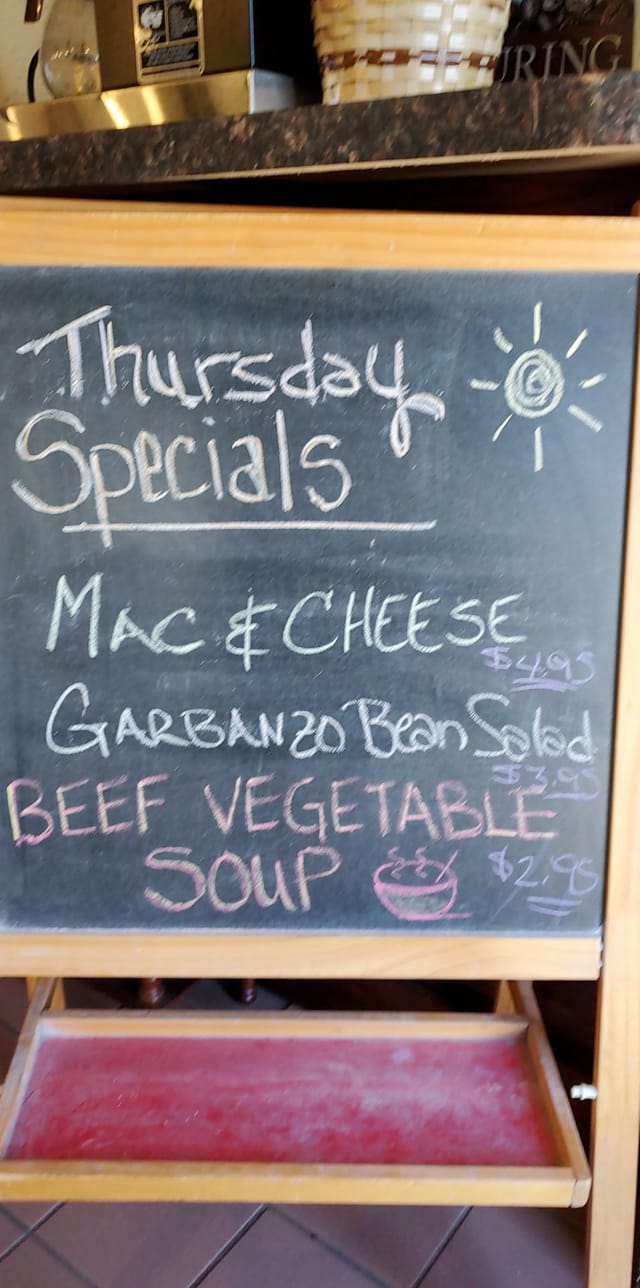 URING
Thursday
Specials
MAC & CHEESE
$4.95
GARBANZO Bean Salad
$3.95
BEEF VEGETABLE
SOUP $2.95